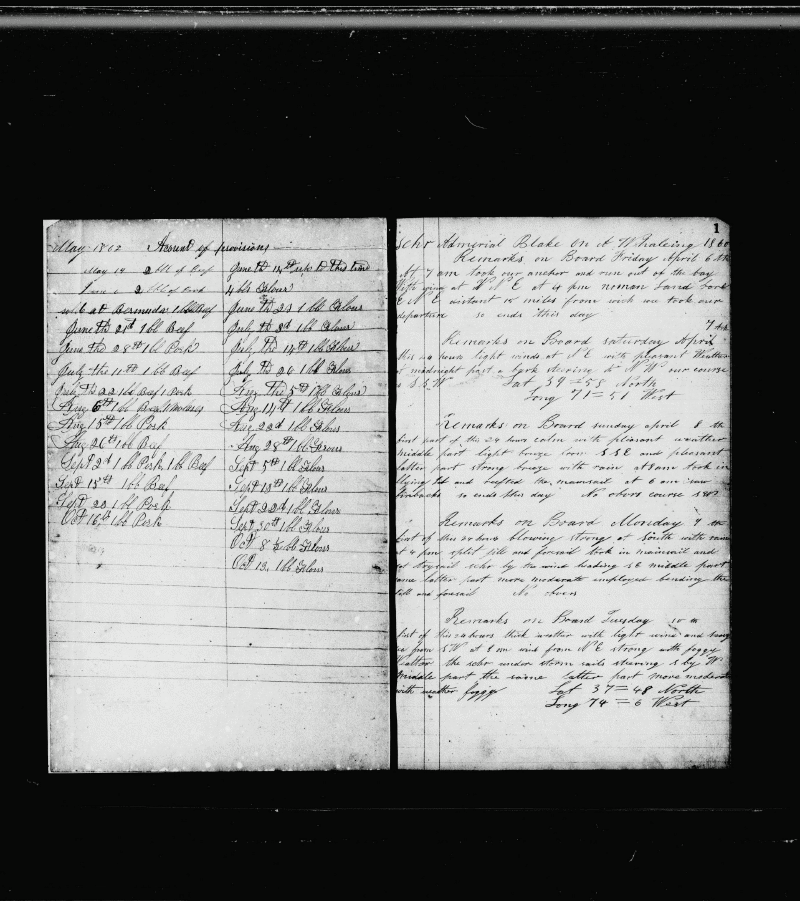 May 1862 Account of provisions
May 19 2 bbl of Beef
June 2 bbl of Pork
at Bermuda 1 bbl Beef
June the 21st 1 bbl Beef
June the 28th 1 bbl Pork
July the 11th 1 bbl Beef
July the 22 1 bbl Beef 1 Pork
Aug 6th 1 bbl Beef 1
Aug 15th 1 bbl Pork
Aug 26th 1 bbl Beef
Sept 2d 1 bbl Pork 1 bbl Beef
Sept 15th 1 bbl Beef
Sept 28 1 bbl Pork
Oct 16th 1 bbl Pork
June th 14th up to this time
4 bbs Flour
June th 23 1 bbl Flour
July th 2d 1 bbl Flour
July the 14th 1 bbl Flour
July the 26 1 bbl Flour
Aug the 5th 1 bbl Flour
Aug 14th 1 bbl Flour
Aug 22d 1 bbl Flour
Aug 28th 1 bbl Flour
Sept 5th 1 bbl Flour
Sept 13th 1 bbl Flour
Sept 22d 1 bbl Flour
Sept 30th 1 bbl Flour
Oct 8 bbl Flour
Oct 13, 1 bbl Flour
1
Schr Admerial Blake on A Whaleing 1860
Remarks on Board Friday April 6 th
At 7 am took our anchor and run out of the bay
With wind at W N E at 4 pm noman Land bore
E N E distant 15 miles from wich we took our
departure so ends this day
7 th
Remarks on Board saturday April
this 24 hours light winds at N E with pleasant Weather
at midnight past a bark stering to N W our course
S S W Lat 39 = 58 North
Long 71 = 51 West
Remarks on Board sunday april 8 th
first part of the 24 hours calm with pleasant weather
middle part light breeze from S S E and pleasant
latter part strong breeze with rain at 8 am took in
flying Jib and reefted the mainsail at 6 am saw
finbacks so ends this day No obvers course SSW
Remarks on Board Monday 9 th
first of this 24 hours blowing strong at South with rain
at 4 pm split jib and foresail took in mainsail and
set trysail schr by the wind heading SE middle part
same latter part more moderate employed bending the
jib and foresail No obvers
Remarks on Board Tuesday 10 th
first of this 24 hours thick weather with light wind and
from S W at 8 am wind from N E strong with foggy
Weather the schr under storm sails stering S by W
middle part the same latter part more moderate
with weather foggy Lat 37 = 48 North
Long 74 = 6 West